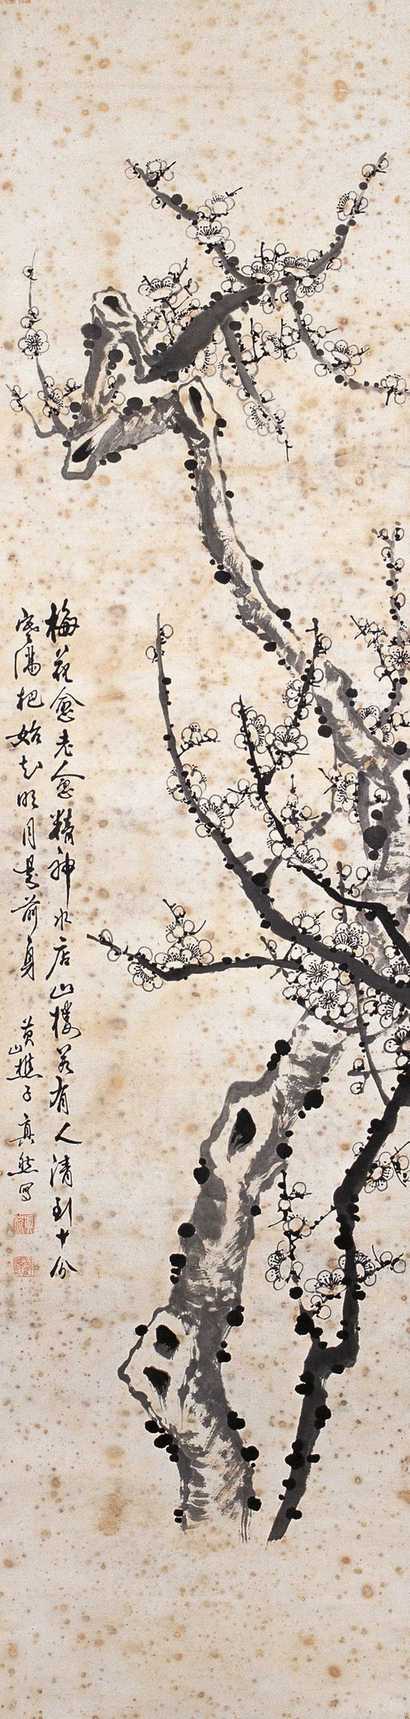 梅花愈老愈精神水店山樓若有人清到十分
寒滿把始知明月是前身
黃山樵子真然寫